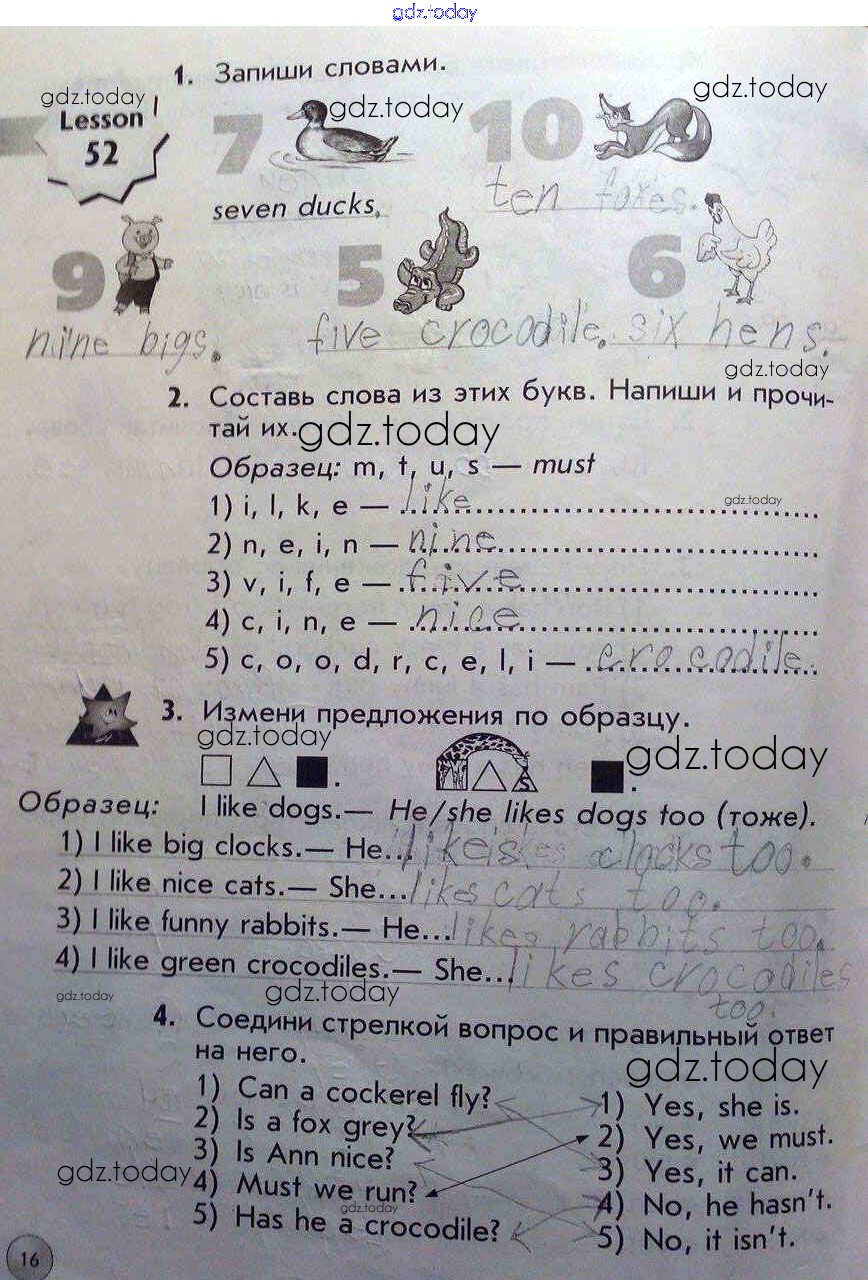 gdz.today
1. Запиши словами.
gdz.today
gdz.today
gdz.today
Lesson
52
7
10
seven ducks,
ten foxes.
9
5
6
nine bigs.
five crocodile.
six hens.
gdz.today
2. Составь слова из этих букв. Напиши и прочи-
тай их.
gdz.today
Образец: m, t, u, s — must
1) i, l, k, e — like
gdz.today
2) n, e, i, n — nine
3) v, i, f, e — five
4) c, i, n, e — nice
5) c, o, o, d, r, c, e, l, i — crocodile.
3. Измени предложения по образцу.
gdz.today
gdz.today
Образец: I like dogs.— He/she likes dogs too (тоже).
1) I like big clocks.— He... likes clocks too.
2) I like nice cats.— She... likes cats too.
3) I like funny rabbits.— He... likes rabbits too.
4) I like green crocodiles.— She... likes crocodiles
too.
gdz.today
gdz.today
4. Соедини стрелкой вопрос и правильный ответ
на него.
gdz.today
1) Can a cockerel fly?
1) Yes, she is.
2) Is a fox grey?
2) Yes, we must.
3) Is Ann nice?
3) Yes, it can.
gdz.today
4) Must we run?
4) No, he hasn't.
gdz.today
5) Has he a crocodile?
5) No, it isn't.
16